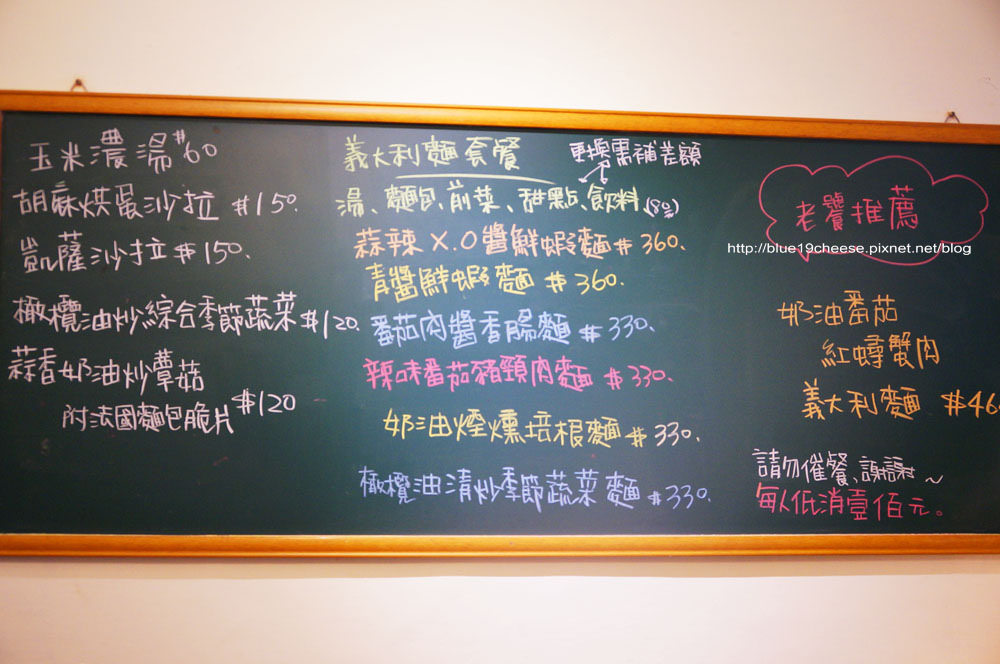 玉米濃湯 #60
胡麻烘蛋沙拉 #150.
凱薩沙拉 #150.
橄欖油炒綜合季節蔬菜 #120.
蒜香奶油炒蕈菇
附法國麵包脆片 #120
義大利麵套餐
更換需補差額
湯、麵包、前菜、甜點、飲料 (80)
蒜辣 X.O醬鮮蝦麵 #360.
青醬鮮蝦麵 #360.
番茄肉醬香腸麵 #330.
辣味番茄豬頸肉麵 #330.
奶油煙燻培根麵 #330.
橄欖油清炒季節蔬菜麵 #330.
老饕推薦
http://blue19cheese.pixnet.net/blog
奶油番茄
紅蟳蟹肉
義大利麵 #46
請勿催餐、謝謝~
每人低消壹佰元。